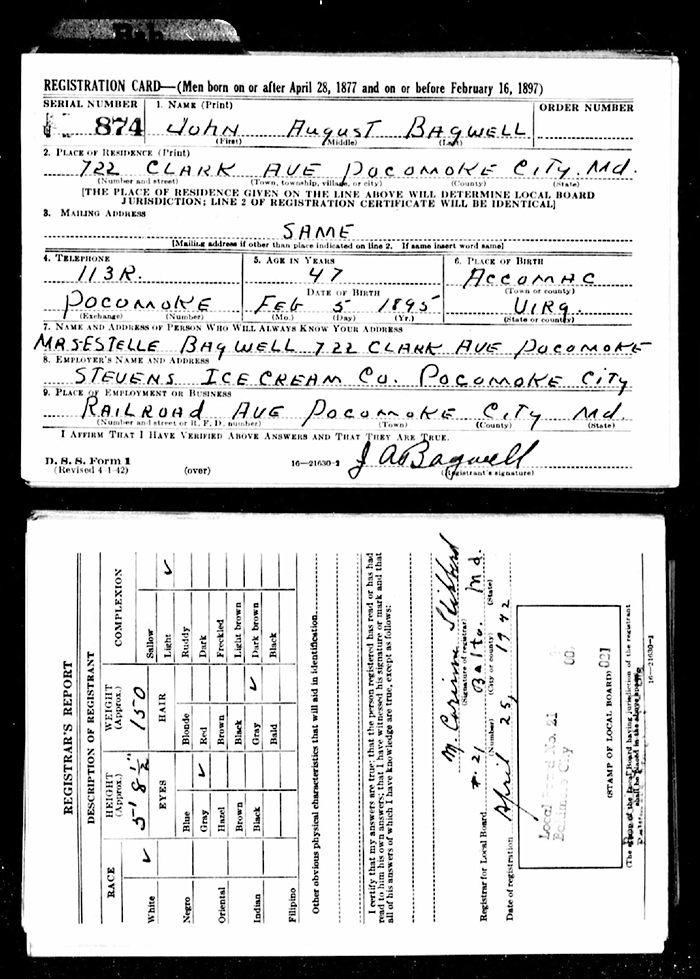 REGISTRATION CARD—(Men born on or after April 28, 1877 and on or before February 16, 1897)
SERIAL NUMBER 1. NAME (Print) ORDER NUMBER
874 JOHN AUGUST BAGWELL
(First) (Middle) (Last)
2. PLACE OF RESIDENCE (Print)
722 CLARK AVE POCOMOKE CITY. Md.
(Number and street) (Town, township, village, or city) (County) (State)
[THE PLACE OF RESIDENCE GIVEN ON THE LINE ABOVE WILL DETERMINE LOCAL BOARD
JURISDICTION; LINE 2 OF REGISTRATION CERTIFICATE WILL BE IDENTICAL]
3. MAILING ADDRESS
SAME
[Mailing address if other than place indicated on line 2. If same insert word same]
4. TELEPHONE 5. AGE IN YEARS 6. PLACE OF BIRTH
113R. 47 ACCOMAC
DATE OF BIRTH (Town or county)
POCOMOKE FEB 5 1895 VIRG.
(Exchange) (Number) (Mo.) (Day) (Yr.) (State or country)
7. NAME AND ADDRESS OF PERSON WHO WILL ALWAYS KNOW YOUR ADDRESS
MRS ESTELLE BAGWELL 722 CLARK AVE POCOMOKE
8. EMPLOYER'S NAME AND ADDRESS
STEVENS ICE CREAM CO. POCOMOKE CITY
9. PLACE OF EMPLOYMENT OR BUSINESS
RAILROAD AVE POCOMOKE CITY Md.
(Number and street or R. F. D. number) (Town) (County) (State)
I AFFIRM THAT I HAVE VERIFIED ABOVE ANSWERS AND THAT THEY ARE TRUE.
D. S. S. Form 1
(Revised 4-1-42) (over) 16—21630-2 J A Bagwell
(Registrant's signature)
REGISTRAR'S REPORT
DESCRIPTION OF REGISTRANT
RACE HEIGHT (Approx.) WEIGHT (Approx.) COMPLEXION
5' 8 1/2" 150
EYES HAIR
White ✓ Sallow
Light ✓
Negro Blue Blonde Ruddy
Gray ✓ Red Dark
Oriental Hazel Brown Freckled
Brown Black Light brown
Indian Black Gray ✓ Dark brown
Bald Black
Filipino
Other obvious physical characteristics that will aid in identification
I certify that my answers are true; that the person registered has read or has had
read to him his own answers; that I have witnessed his signature or mark and that
all of his answers of which I have knowledge are true, except as follows:
M. Corinne
(Signature of registrar)
Registrar for Local Board # 21 Balto. Md.
(Number) (City or county) (State)
Date of registration April 25, 1942
Local Board No. 21
Baltimore City
(STAMP OF LOCAL BOARD)
(The stamp of the Local Board having jurisdiction of the registrant
shall be placed in the above space)
16—21630-2